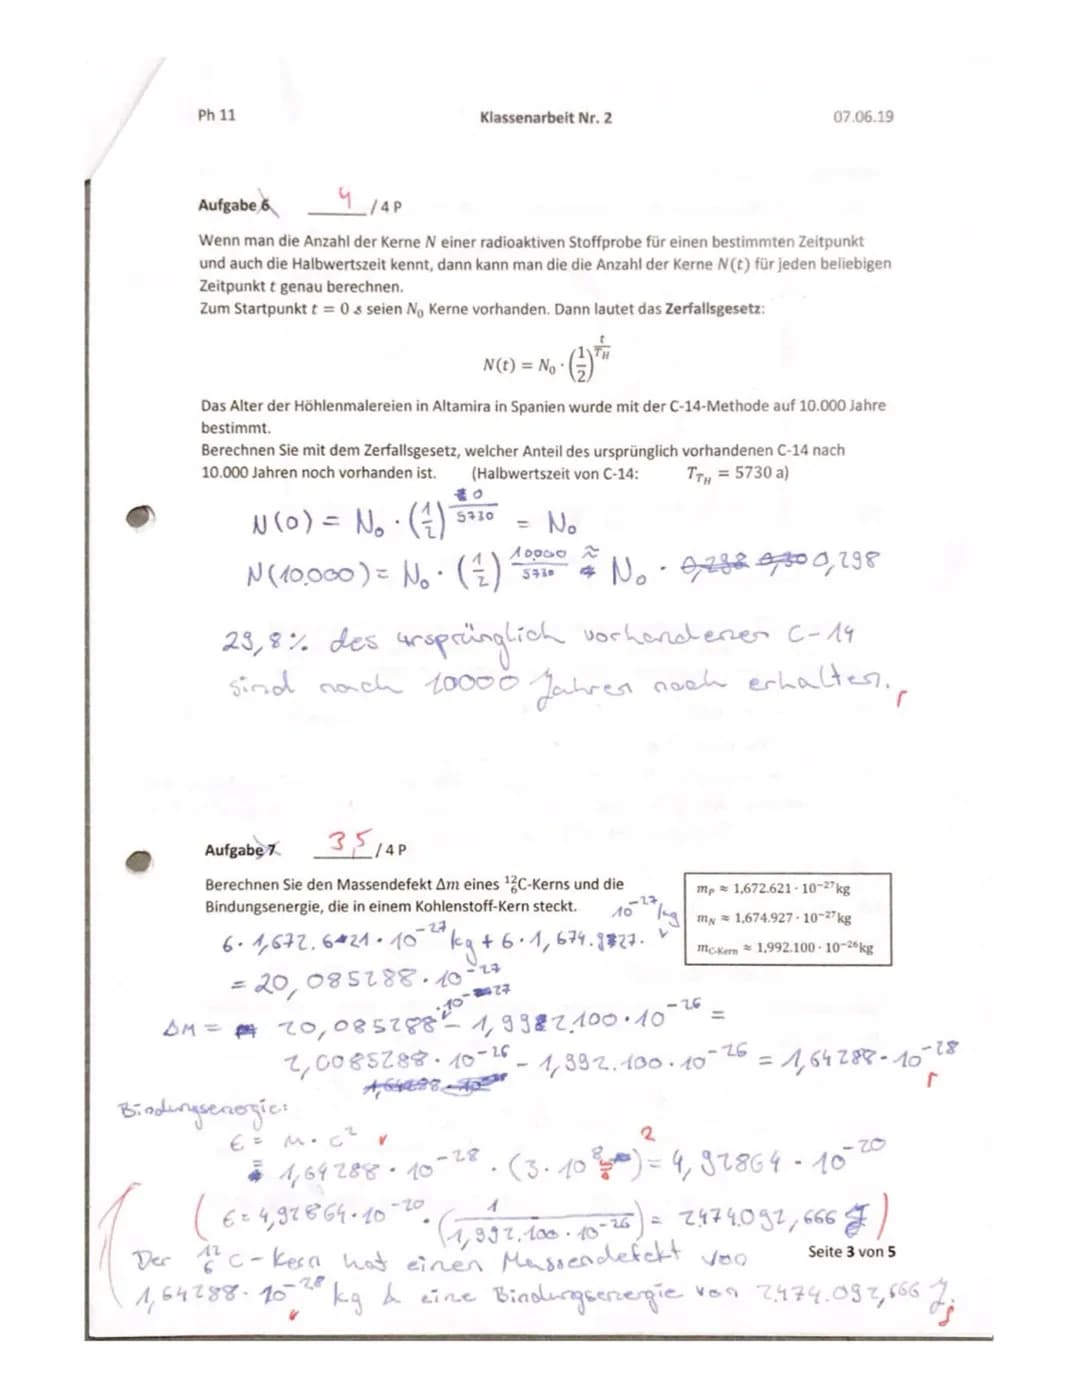 Ph 11 Klassenarbeit Nr. 2 07.06.19
Aufgabe 6 4 / 4 P
Wenn man die Anzahl der Kerne N einer radioaktiven Stoffprobe für einen bestimmten Zeitpunkt
und auch die Halbwertszeit kennt, dann kann man die die Anzahl der Kerne N(t) für jeden beliebigen
Zeitpunkt t genau berechnen.
Zum Startpunkt t = 0 s seien N₀ Kerne vorhanden. Dann lautet das Zerfallsgesetz:
N(t) = N₀ · (1/2)^(t/T_H)
Das Alter der Höhlenmalereien in Altamira in Spanien wurde mit der C-14-Methode auf 10.000 Jahre
bestimmt.
Berechnen Sie mit dem Zerfallsgesetz, welcher Anteil des ursprünglich vorhandenen C-14 nach
10.000 Jahren noch vorhanden ist. (Halbwertszeit von C-14: T_TH = 5730 a)
N(0) = N₀ · (1/2)^(0/5730) = N₀
N(10.000) = N₀ · (1/2)^(10000/5730) ≈ N₀ · 0,298
29,8% des ursprünglich vorhandenen C-14
sind nach 10000 Jahren noch erhalten. r
Aufgabe 7 3,5 / 4 P
Berechnen Sie den Massendefekt Δm eines ¹²₆C-Kerns und die
Bindungsenergie, die in einem Kohlenstoff-Kern steckt.
m_P ≈ 1,672.621 · 10⁻²⁷ kg
m_N ≈ 1,674.927 · 10⁻²⁷ kg
m_C-Kern ≈ 1,992.100 · 10⁻²⁶ kg
6 · 1,672.621 · 10⁻²⁷ kg + 6 · 1,674.927 · 10⁻²⁷ kg
= 20,085288 · 10⁻²⁷
ΔM = 20,085288 · 10⁻²⁷ − 1,992.100 · 10⁻²⁶ =
2,0085288 · 10⁻²⁶ − 1,992.100 · 10⁻²⁶ = 1,64288 · 10⁻²⁸
r
Bindungsenergie:
E = M · c²
= 1,64288 · 10⁻²⁸ · (3 · 10⁸)² = 4,92864 · 10⁻²⁰
(E = 4,92864 · 10⁻²⁰ · (1/1,992.100 · 10⁻²⁶) = 2474.092,666 J)
Seite 3 von 5
Der ¹²₆C-Kern hat einen Massendefekt von
1,64288 · 10⁻²⁸ kg & eine Bindungsenergie von 2.474.092,666 J.